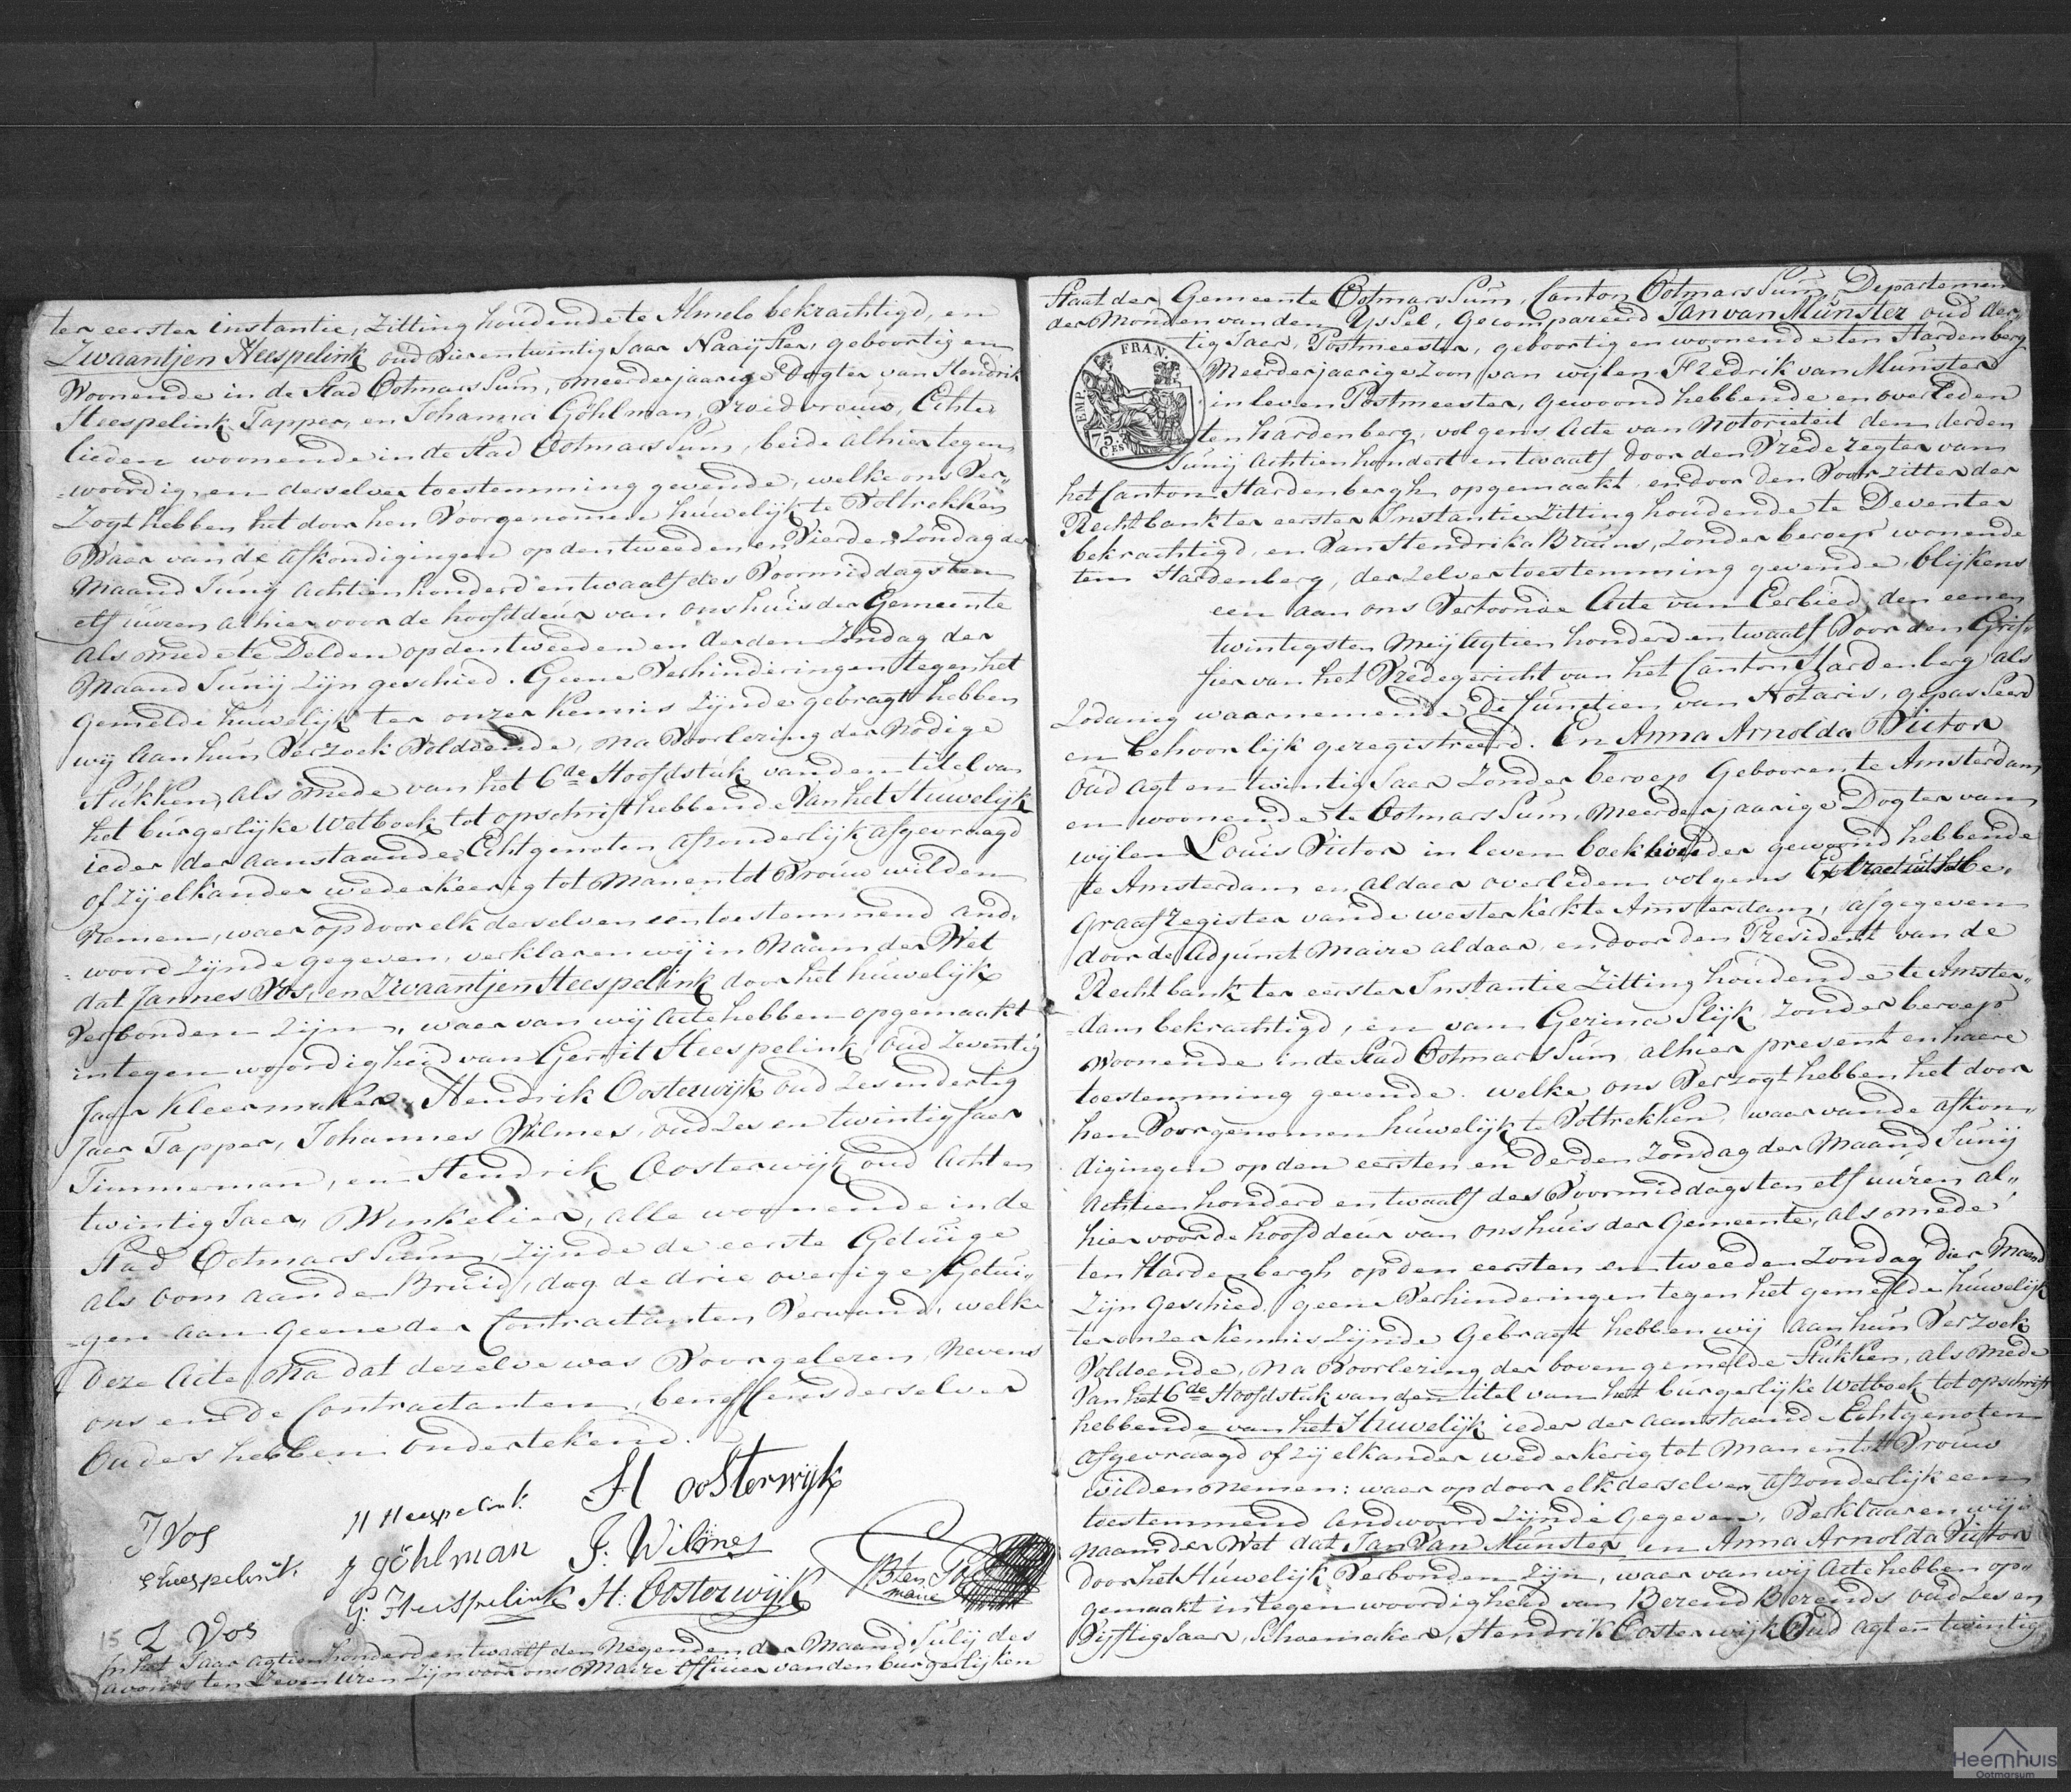 ter eerster instantie, zitting houdende te Almelo bekrachtigd, en
Zwaantjen Heespelink oud vierentwintig Jaar Naaijster, geboortig en
Woonende in de Stad Ootmarssum, meerderjaarige Dogter van Hendrik
Heespelink Tapper, en Johanna Göhlman, Vroedvrouw, Echte
lieden woonende in de Stad Ootmarssum, beide alhier tegen
=woordig, en derselver toestemming gevende, welke ons ver=
zogt hebben het door hen voorgenomen huwelijk te voltrekken
Waer van de afkondigingen op den tweeden en vierden Zondag der
Maand Junij achtienhonderd en twaalf des voormiddags ten
elf uuren alhier voor de hoofddeur van ons huis der Gemeente
als mede te Delden op den tweeden en derden Zondag der
Maand Junij zijn geschied. Geene verhinderingen tegen het
gemelde huwelijk ter onzer kennis zijnde gebragt hebben
wij aan hun verzoek voldoende, na voorlezing der nodige
Stukken, als mede van het 6de Hoofdstuk van den titel van
het burgerlijke Wetboek tot opschrift hebbende van het Huwelijk
ieder der aanstaande Echtgenoten afzonderlijk afgevraagd
of zij elkander wederkeerig tot Man en tot Vrouw wilden
Nemen, waer op door elk derselven een toestemmend and=
=woord zijnde gegeven, verklaren wij in Naam der Wet
dat Jannes Vos, en Zwaantjen Heespelink door het huwelijk
verbonden zijn, waer van wij acte hebben opgemaakt
in tegenwoordigheid van Gerrit Heespelink, oud Zeventig
Jaar Kleermaker, Hendrik Oosterwijk oud zes en dertig
Jaer Tapper, Johannes Wilmes, oud zes en twintig Jaer
Timmerman, en Hendrik Oosterwijk oud Acht en
twintig Jaer, Winkelier, alle woonende in de
Stad Ootmarssum, zijnde de eerste Getuige
als oom aan de Bruid, dog de drie overige Getui=
=gen aan geene der Contractanten verwand, welke
deze Acte na dat dezelve was voorgelezen, nevens
ons en de Contractanten, beneffens derselver
Ouders hebben ondertekend.
H Heespelink H Oosterwijk
J Vos
J göhlman J. Wilmes
Heespelink
G. Heespelink H. Oosterwijk
maire
15 L Vos
In het Jaar agtienhonderd en twaalf den Negenden der Maand Julij des
avonds ten Zeven Uren zijn voor ons Maire Officier van den burgerlijken
Staat der Gemeente Ootmarssum, Canton Ootmarssum, Departement
der Monden van den Yssel, gecompareerd Jan van Munster oud der
tig Jaer, Postmeester, geboortig en woonende ten Hardenberg
EMP. FRAN.
75. Ces
Meerderjaarige Zoon van wijlen Fredrik van Munster
in leven Postmeester, gewoond hebbende en overleden
ten hardenberg, volgens Acte van Notorieteit den derden
Junij achtienhondert en twaalf door den Vrederegter van
het Canton Hardenbergh opgemaakt en door den Voorzitter der
Rechtbank ter eerster Instantie zitting houdende te Deventer
bekrachtigd, en van Hendrika Bruins, zonder beroep wonende
ten Hardenberg, derzelver toestemming gevende, blijkens
een aan ons vertoonde Acte van Eerbied, den eenen
twintigsten Meij agtien honderd en twaalf voor den Grif
fier van het Vredegericht van het Canton Hardenberg als
zodanig waarnemende De functien van Notaris, gepasseerd
en behoorlijk geregistreerd. En Anna Arnolda Victor
Oud agt en twintig Jaer zonder beroep Gebooren te Amsterdam
en woonende te Ootmarssum, meerderjaarige Dogter van
wijlen Louis Victor in leven boekbinder gewoond hebbende
te Amsterdam en aldaer overleden volgens Extract uit het be=
graaf register van de westerkerk te Amsterdam, afgegeven
door de Adjunct Maire aldaar, en door den President van de
Rechtbank ter eerster Instantie zitting houdende te Amster=
=dam bekrachtigd, en van Gezina Slijk zonder beroep
woonende in de Stad Ootmarssum alhier present en haere
toestemming gevende. welke ons verzogt hebben het door
hen voorgenomen huwelijk te voltrekken, waer van de afkon=
digingen op den eersten en derden Zondag der Maand Junij
achtienhonderd en twaalf des voormiddags ten elf uuren al=
hier voor de hoofddeur van ons huis der Gemeente, als mede
ten Hardenbergh op den eersten en tweeden Zondag dier Maand
zijn geschied. geene verhinderingen tegen het gemelde huwelijk
ter onzer kennis zijnde gebragt hebben wij aan hun verzoek
voldoende, na voorlezing der boven gemelde Stukken, als mede
van het 6de Hoofdstuk van den titel van het burgerlijke Wetboek tot opschrift
hebbende van het Huwelijk ieder der aanstaande Echtgenoten
afgevraagd of zij elkander wederkerig tot Man en tot Vrouw
wilden nemen: waer op door elk derselven afzonderlijk een
toestemmend andwoord zijnde gegeven, verklaaren wij in
naam der Wet dat Jan van Munster en Anna Arnolda Victor
door het Huwelijk verbonden zijn, waer van wij Acte hebben op=
gemaakt in tegenwoordigheid van Berend Berends oud zes en
vijftig Jaer, Schoenmaker, Hendrik Oosterwijk Oud agt en twintig
Heemhuis
Ootmarsum